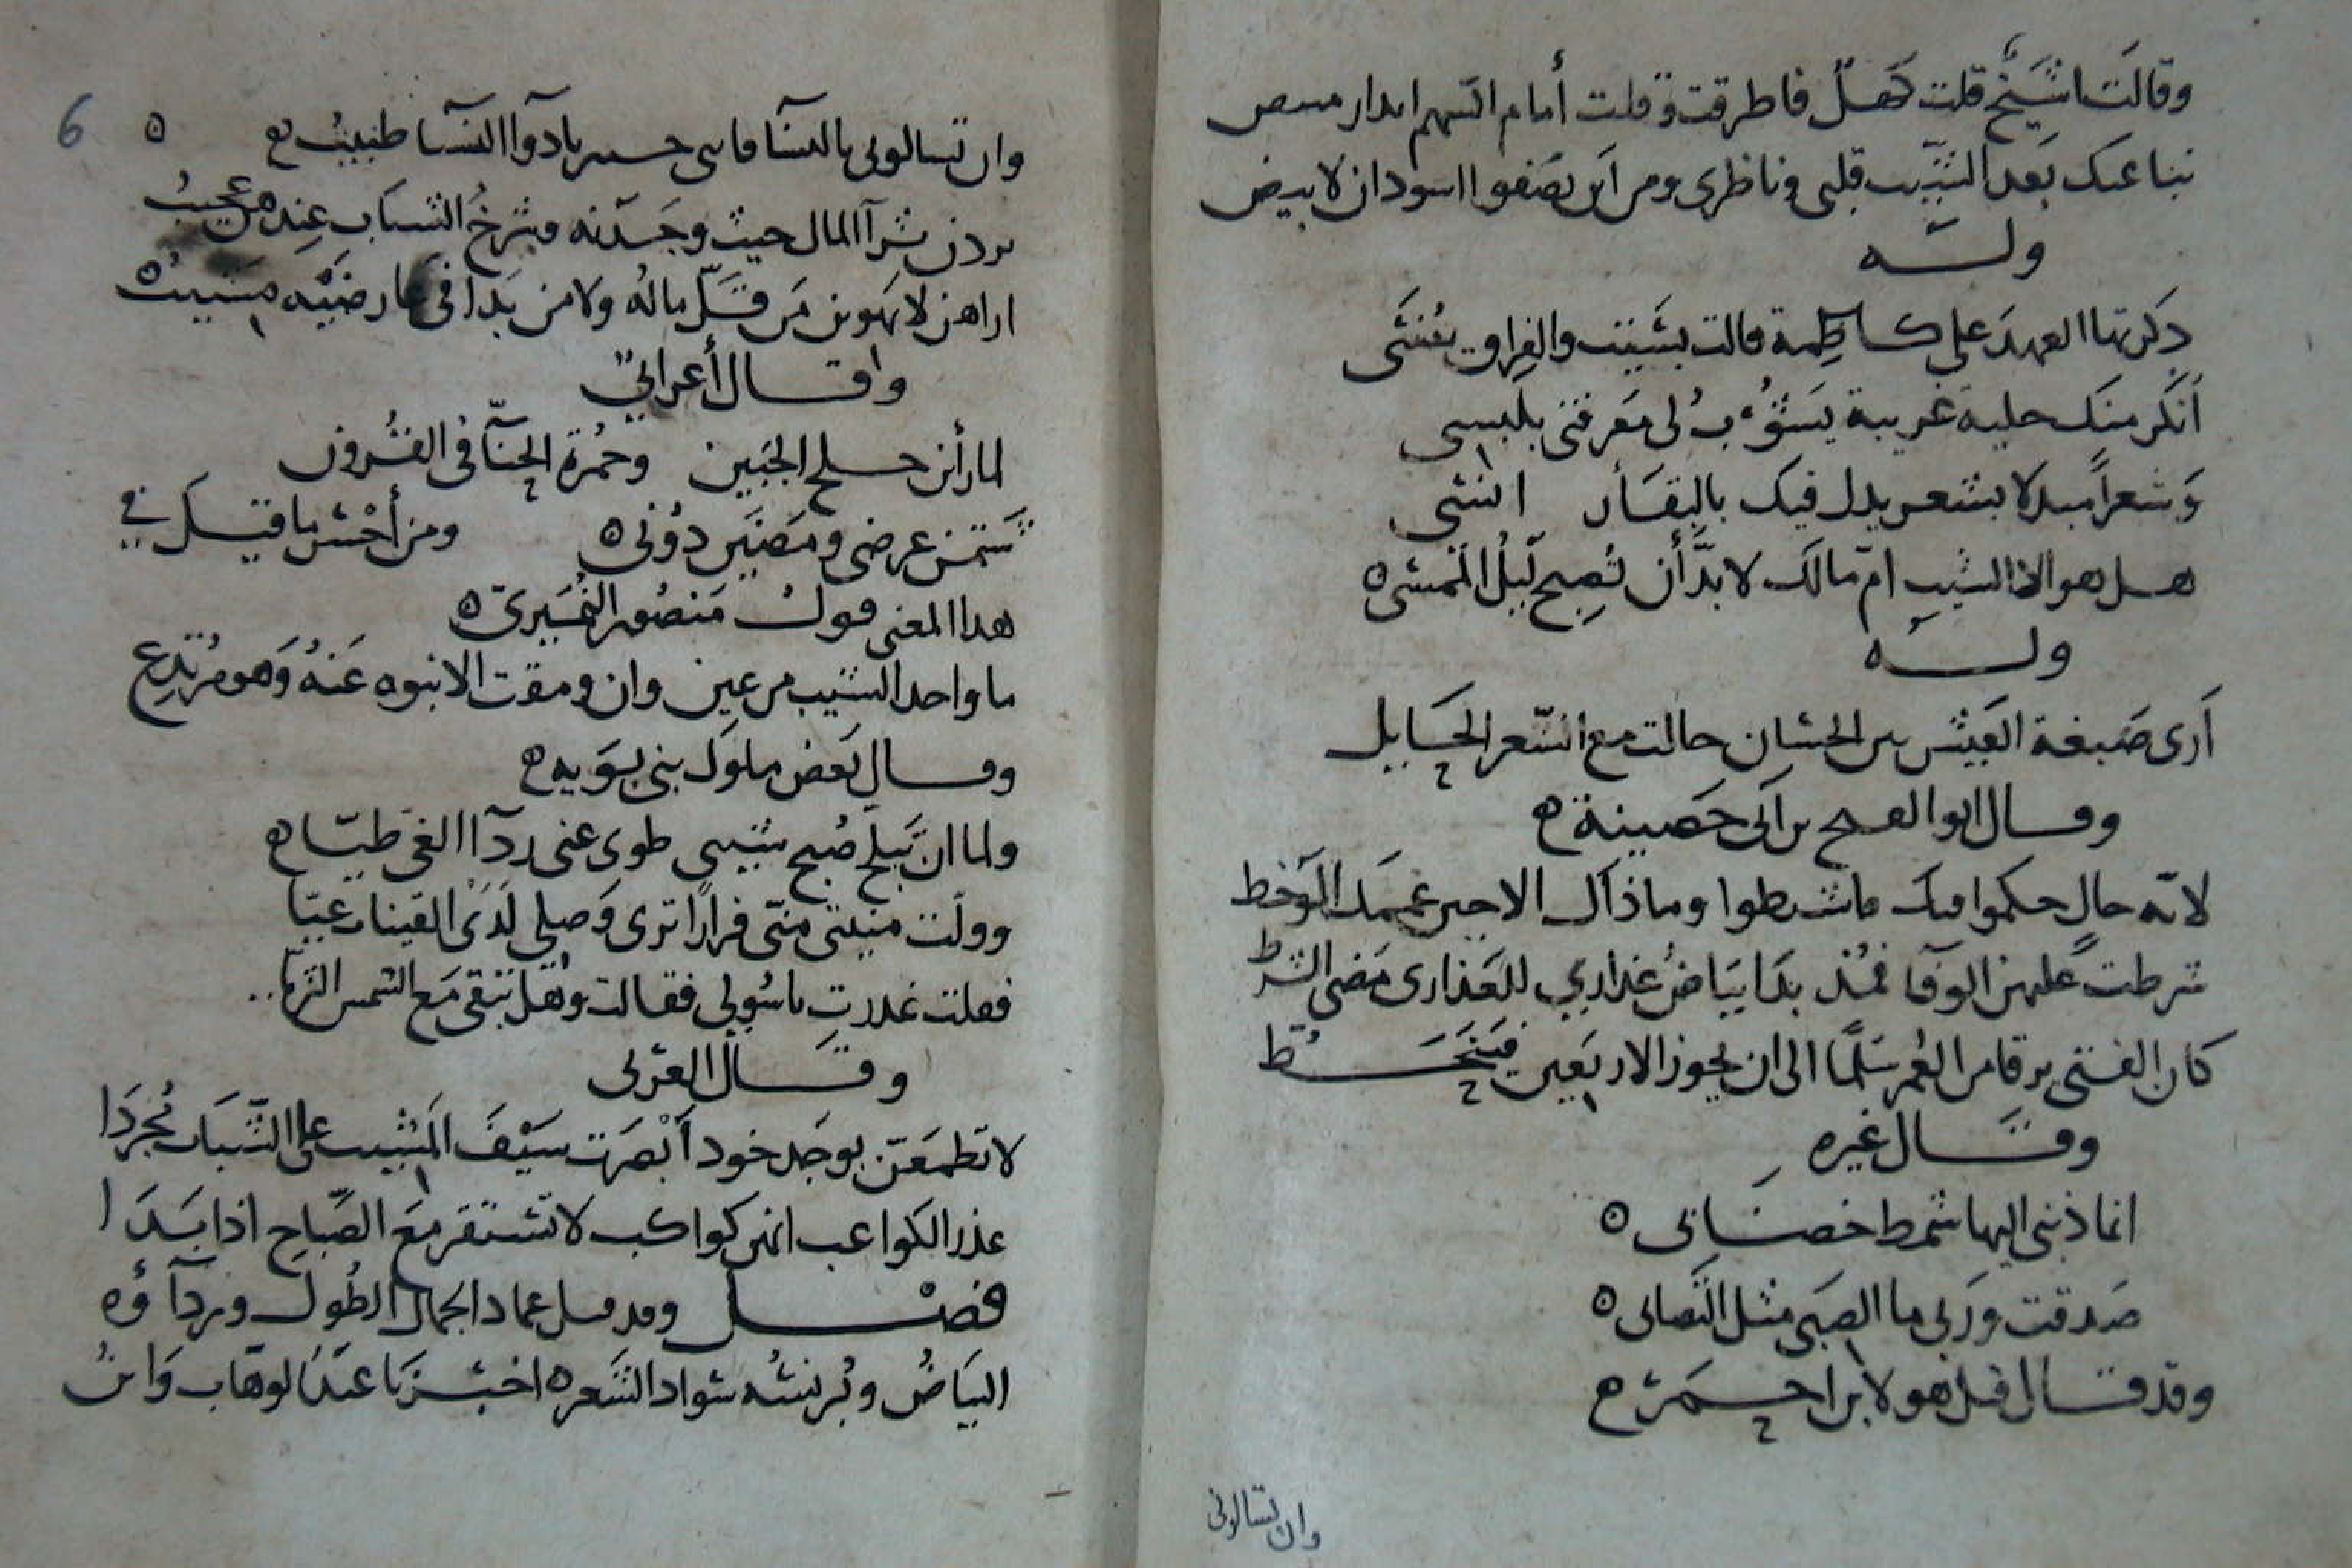 وقالت اشيخ قلت كهل فاطرقت وقلت أمام السهم ابدار
نبا عنك بعد الشيب قلبي وناظري ومن اين يصفوا اسودان لابيض
وله
ذكرتها العهد على كاظمة قالت نسيت والفراق ينسي
أنكر منك حلية غريبة يسؤ لى معرفتى بلبسى
وشعراً مبدلا بشعر يدل فيك
هل هو الا الشيب ام مالك لا بد أن تصبح ليل الممسى ه
وله
أرى صبغة العيش بين الحسان حالت مع الشعر الحايل
وقال ابو الفتح بن أبى حصينة ه
لاية حال حكموا فيك فاشتطوا وما ذاك الا حين عممك الوخط
شرطت عليهن الوفا فمذ بدا بياض عذاري للعذارى مضى الشرط
كان الفتى يرقا من العمر سلما الى ان يجوز الاربعين فينحط
وقال غيره
انما ذنبى اليها شمط خصـ
صدقت وربى ما الصبى مثل التصابى ه
وقد قال قبل هولا بن احمر ه
وان تسالونى
6
وان تسالونى بالنسا فاننى خبير بادوا النسا طبيب
يردن ثرآ المال حيث وجدنه وشرخ الشباب عندهن عجيب
اراهن لا يهوين من قل ماله ولا من بدا فى عارضيه مشيب ه
وقال أعرابي
لما رأين جلح الجبين وحمرة الحنآ فى القرون
شتمن عرضى ومضين دونى ه ومن أحسن ما قيل في
هذا المعنى قول منصور النميرى ه
ما واجه الشيب من عين وان ومقت الا نبوه عنه وهو مرتدع
وقال بعض ملوك بنى بويه ه
ولما ان تبلج صبح شيبى طوى عنى ردآ الغى طيا ه
وولت منيتى منى فرارا ترى وصلى لدى القينات عيبا
فقلت غدرت ياسولى فقالت وهل تبقى مع الشمس الثريا
وقال الغزى
لا تطمعن بوجد خود أبصرت سيف المشيب على الشباب مجردا
عذر الكواعب انهن كواكب لا تستقر مع الصباح اذا بدا
فصل وقد قيل عماد الجمال الطول وردآؤه
البياض وبرنسه سواد الشعر ه اخبرنا عبد الوهاب وابن